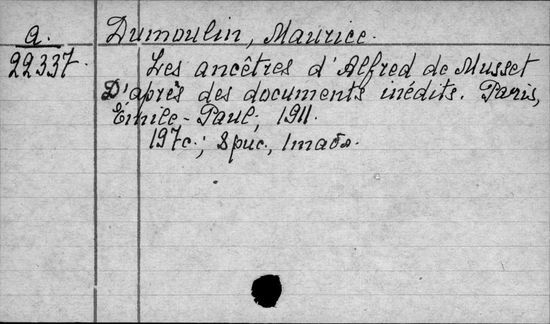 a. Dumoulin, Maurice.
22337. Les ancêtres d'Alfred de Musset
D'après des documents inédits. Paris,
Emile-Paul, 1911.
197c.; 8рис., 1табл.